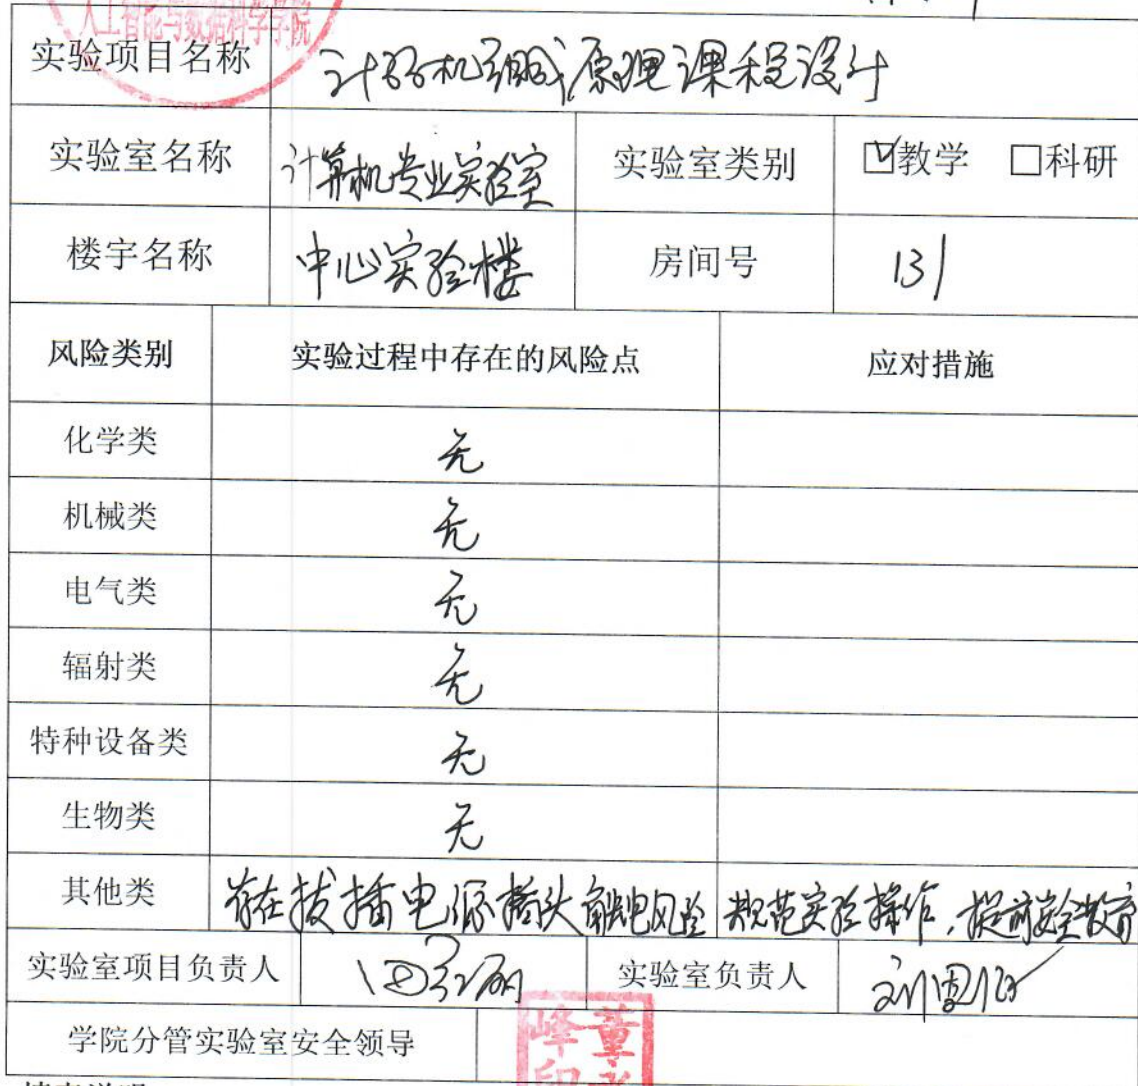 人工智能与数据科学学院
实验项目名称 计算机组成原理课程设计
实验室名称 计算机专业实验室 实验室类别 ☑教学 □科研
楼宇名称 中心实验楼 房间号 131
风险类别 实验过程中存在的风险点 应对措施
化学类 无
机械类 无
电气类 无
辐射类 无
特种设备类 无
生物类 无
其他类 存在拔插电源插头触电风险 规范实验操作,提前安全教育
实验室项目负责人 实验室负责人
学院分管实验室安全领导 董 峰 印